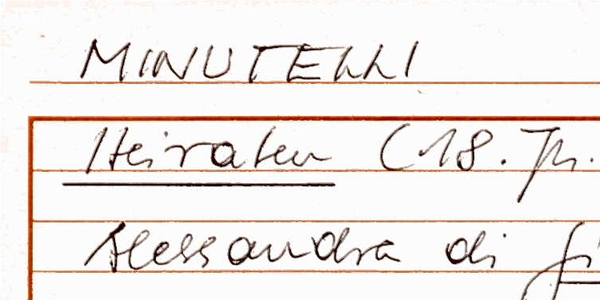 MINUTELLI
Heiraten (18. Jh.
Alessandra di